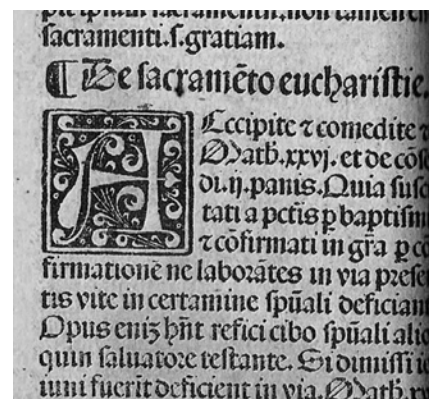 sacramenti.s.gratiam.
¶ De sacramēto eucharistie.
Accipite ⁊ comedite ⁊
Math.xxvj. et de cōse
di.ij.panis.Quia susc
tati a pctīs ꝑ baptism
⁊ cōfirmati in gr̄a ꝑ cō
firmationē ne laborātes in via prese
tis vite in certamine spūali deficiant
Opus eniꝫ hn̄t refici cibo spūali alio
quin saluatore testante. Si dimissi ie
iuni fuerīt deficient in via. Math.xv